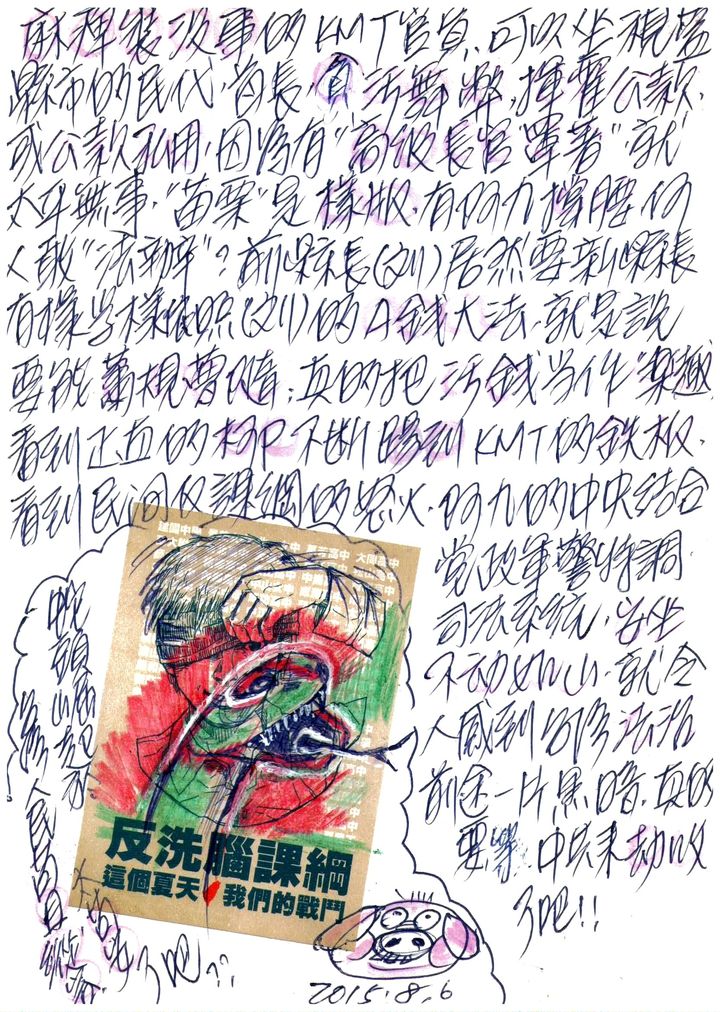 麻痺裝沒事的KMT官員、可以坐視藍
縣市的民代、首長、貪污舞弊、揮霍公款、
或公款私用、因為有"高級長官罩著"就
太平無事、"苗栗"是樣版、有阿九撐腰何
人敢"法辦"？前縣長(刘)居然要新縣長
有樣学樣依照(刘)的A錢大法、就是說
要能蕭規曹隨；真的把污錢当作樂趣
看到正直的柯P不断踢到KMT的鉄板、
看到民间反課綱的怒火、阿九的中央結合
党政軍警特調
司法系統、当坐
不动如山、就令
人感到台湾法治
前途一片黑暗、真的
要等中共来劫收
了吧!!
建國中學
大同高中
反洗腦課綱
這個夏天 我們的戰鬥
人民
了吧??
2015.8.6